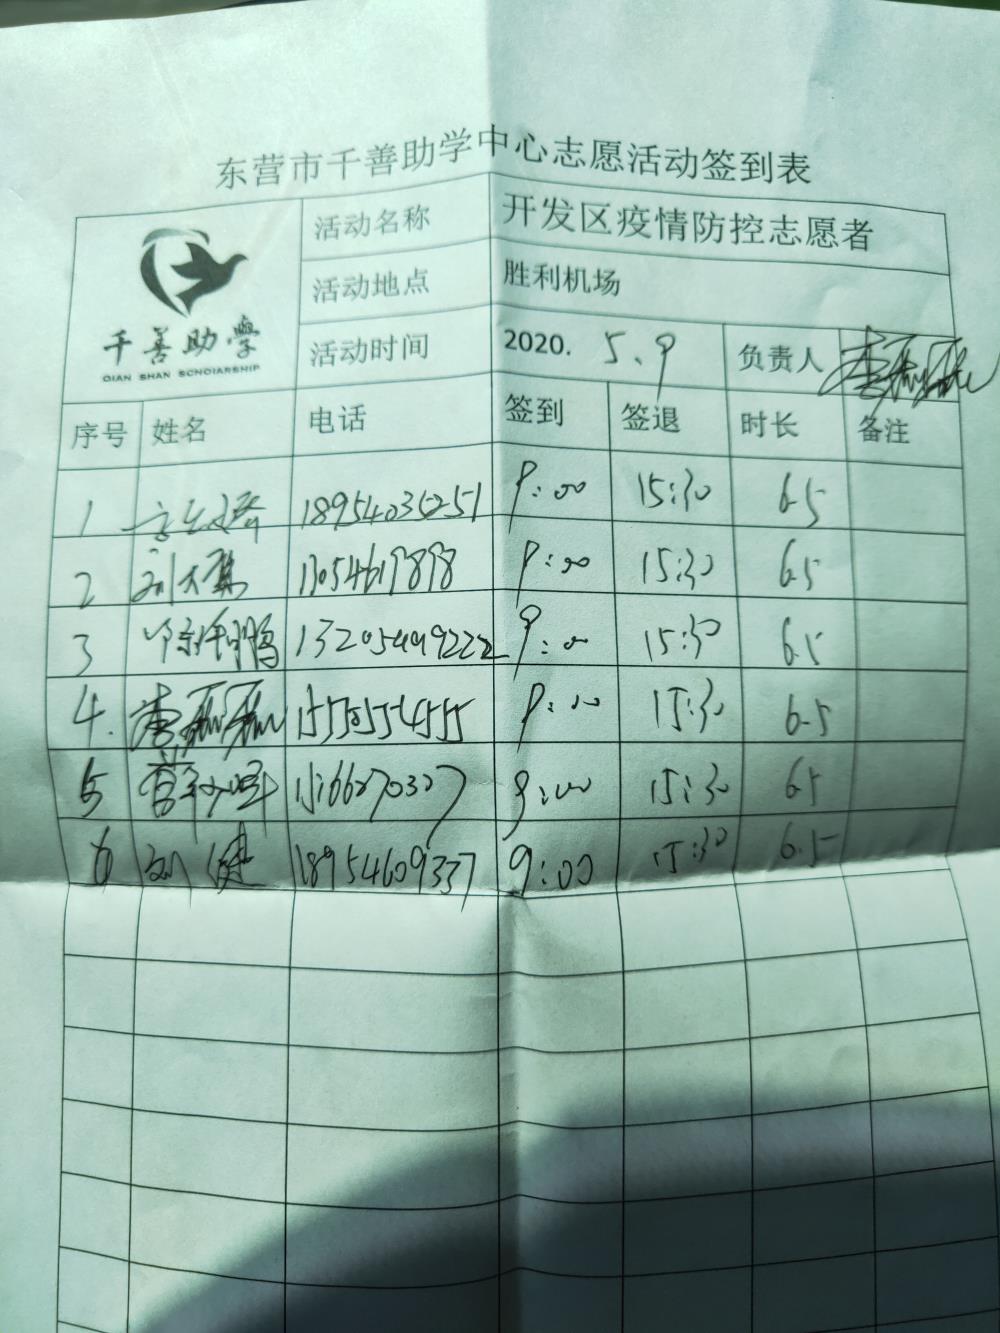 东营市千善助学中心志愿活动签到表
千善助学
QIAN SHAN SCHOLARSHIP
活动名称 开发区疫情防控志愿者
活动地点 胜利机场
活动时间 2020. 5.9 负责人 李磊磊
序号 姓名 电话 签到 签退 时长 备注
1 18954035251 9:00 15:30 6.5
2 刘大 13054619898 9:00 15:30 6.5
3 鹏 13205499222 9:00 15:30 6.5
4. 李磊磊 15550554555 9:00 15:30 6.5
5 9:00 15:30 6.5
6 刘健 18954609337 9:00 15:30 6.5